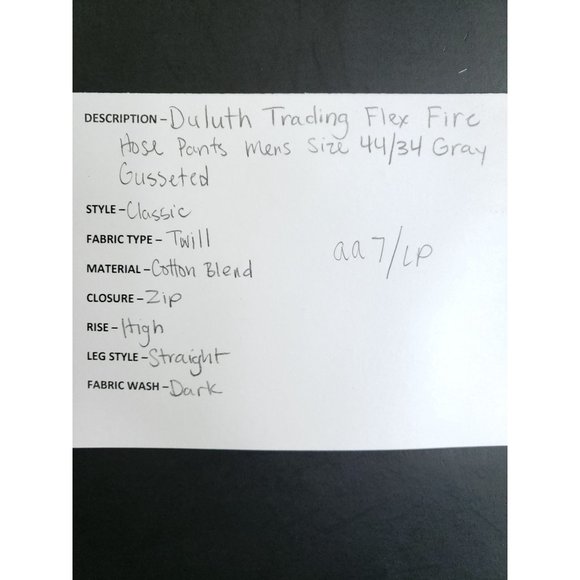 DESCRIPTION – Duluth Trading Flex Fire
Hose Pants Mens Size 44/34 Gray
Gusseted
STYLE – Classic
FABRIC TYPE – Twill
MATERIAL – Cotton Blend
CLOSURE – Zip
RISE – High
LEG STYLE – Straight
FABRIC WASH – Dark
aa7/LP